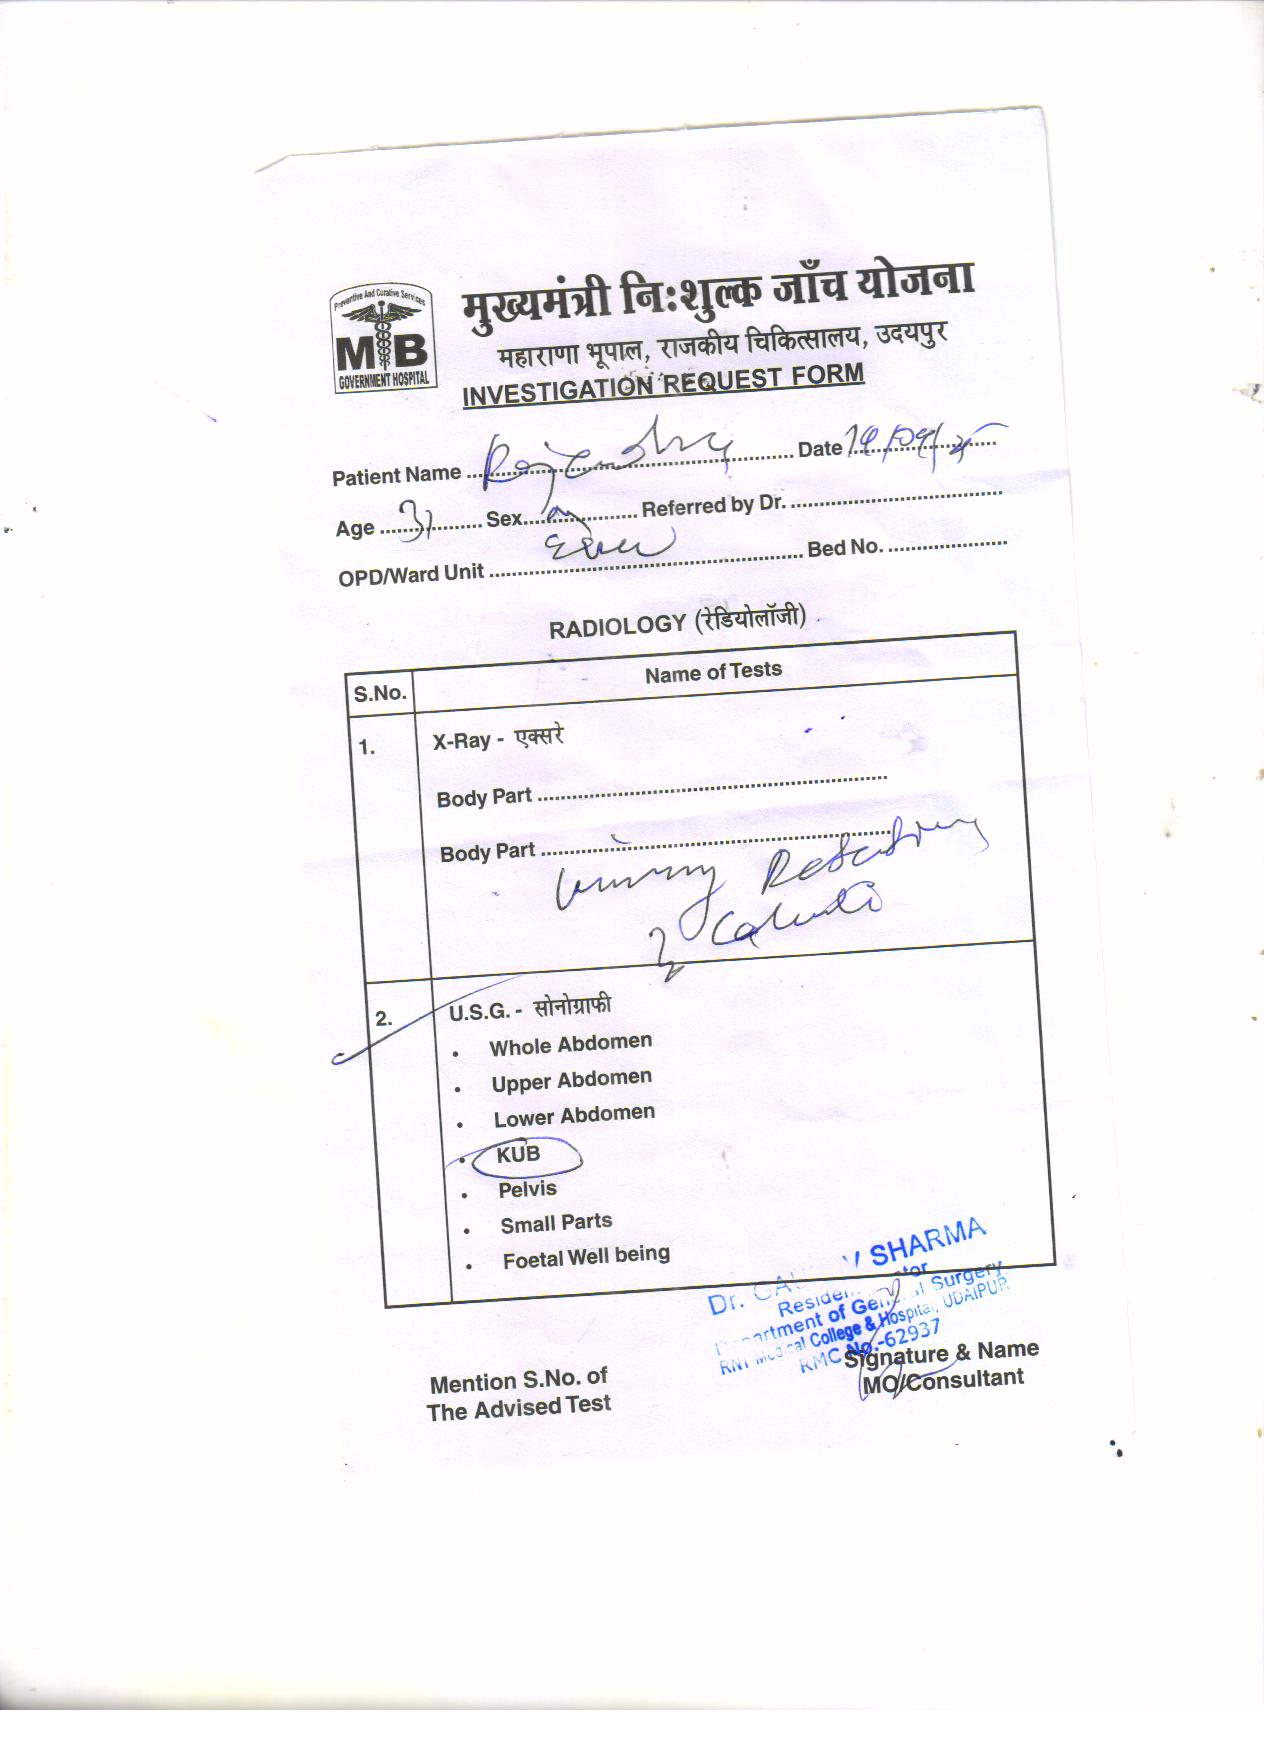 Preventive And Curative Services
MB
GOVERNMENT HOSPITAL
मुख्यमंत्री निःशुल्क जाँच योजना
महाराणा भूपाल, राजकीय चिकित्सालय, उदयपुर
INVESTIGATION REQUEST FORM
Patient Name ........ Date ........
Age 31 Sex ........ Referred by Dr. ........
OPD/Ward Unit ........ Bed No. ........
RADIOLOGY (रेडियोलॉजी)
S.No. Name of Tests
1. X-Ray - एक्सरे
Body Part ........
Body Part ........
2. U.S.G. - सोनोग्राफी
• Whole Abdomen
• Upper Abdomen
• Lower Abdomen
• KUB
• Pelvis
• Small Parts
• Foetal Well being
Dr. SHARMA
Department of General Surgery
RNT Medical College & Hospital, UDAIPUR
RMC No.-62937
Signature & Name
MO/Consultant
Mention S.No. of
The Advised Test